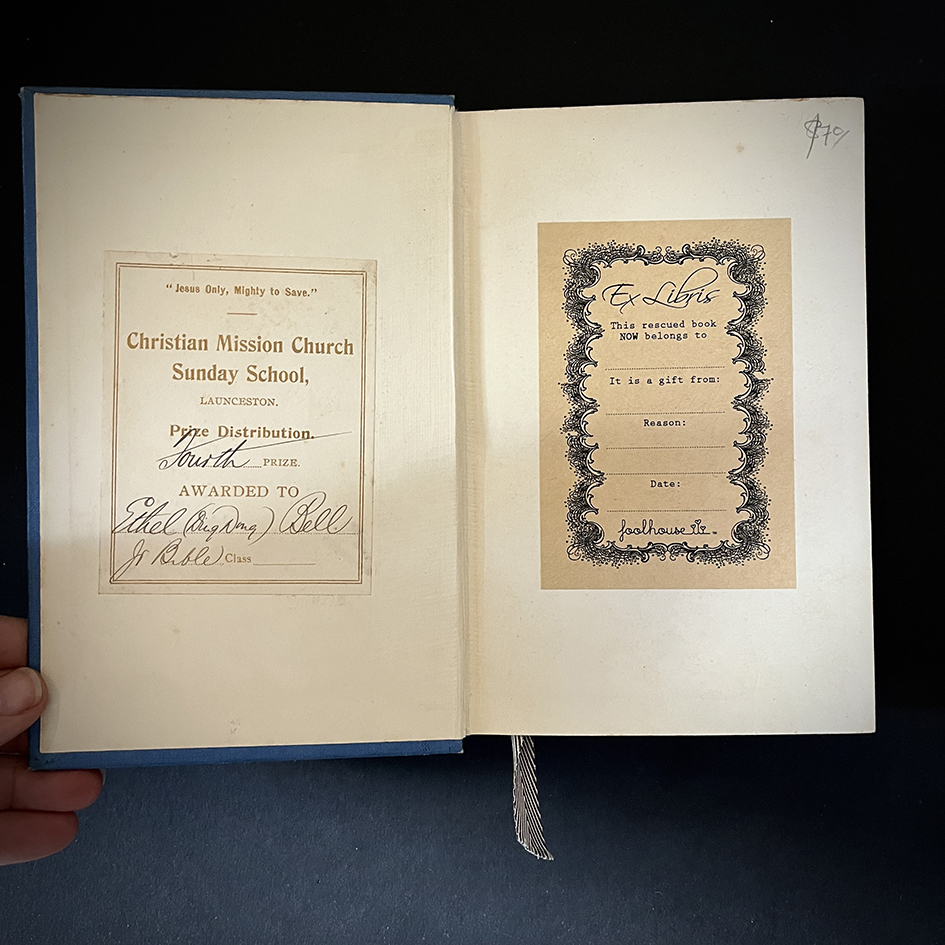 "Jesus Only, Mighty to Save."
Christian Mission Church
Sunday School,
LAUNCESTON.
Prize Distribution.
Fourth PRIZE.
AWARDED TO
Ethel (Ding Dong) Bell
Jr Bible Class
Ex Libris
This rescued book
NOW belongs to
It is a gift from:
Reason:
Date:
foolhouse